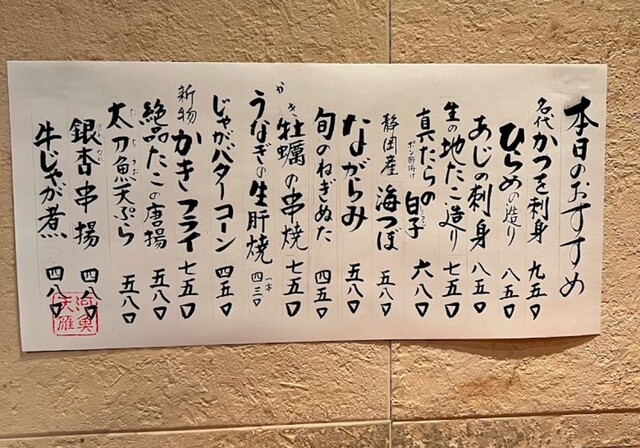 本日のおすすめ
名代かつを刺身 九五〇
ひらめの造り 八五〇
あじの刺身 八五〇
生の地たこ造り 七五〇
真たらの白子 ポン酢掛け 六八〇
静岡産 海つぼ 五八〇
ながらみ 五八〇
旬のねぎぬた 四五〇
牡蠣の串焼 七五〇
うなぎの生肝焼 一本 四三〇
じゃがバターコーン 四五〇
新物 かきフライ 七五〇
絶品たこの唐揚 五八〇
太刀魚天ぷら 五八〇
銀杏串揚 四八〇
牛じゃが煮 四八〇